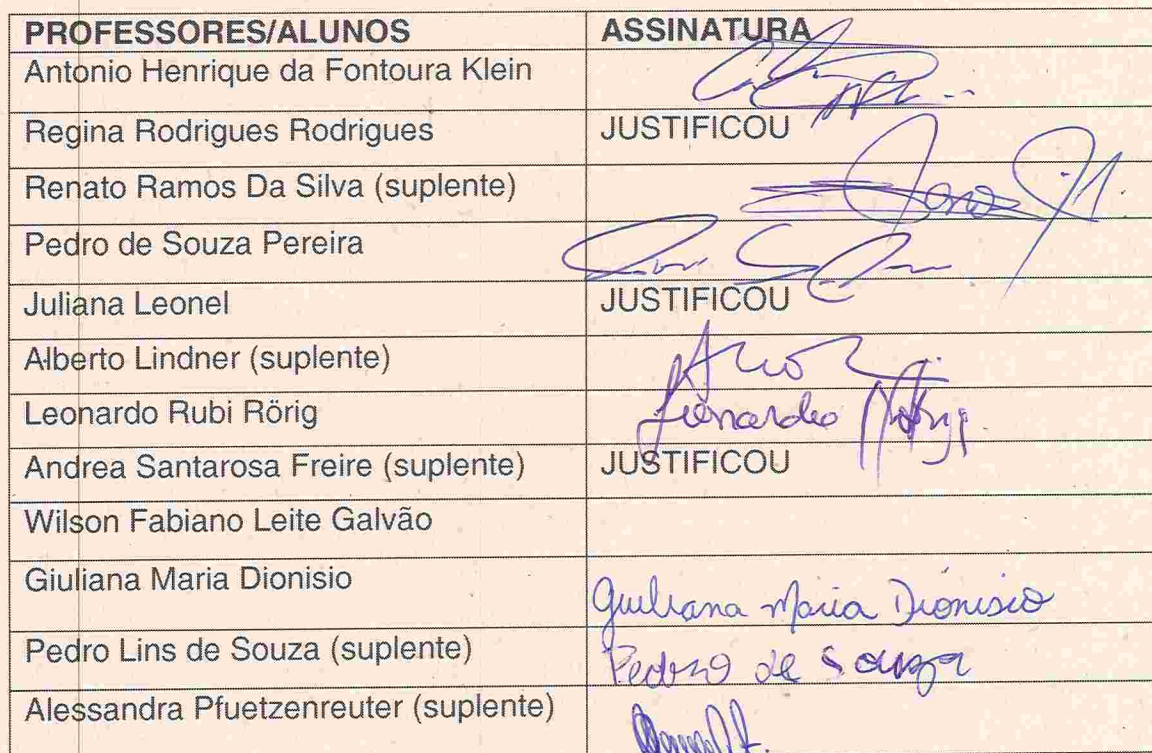 PROFESSORES/ALUNOS ASSINATURA
Antonio Henrique da Fontoura Klein
Regina Rodrigues Rodrigues JUSTIFICOU
Renato Ramos Da Silva (suplente)
Pedro de Souza Pereira
Juliana Leonel JUSTIFICOU
Alberto Lindner (suplente)
Leonardo Rubi Rörig Leonardo Rörig
Andrea Santarosa Freire (suplente) JUSTIFICOU
Wilson Fabiano Leite Galvão
Giuliana Maria Dionisio Giuliana Maria Dionisio
Pedro Lins de Souza (suplente) Pedro de Souza
Alessandra Pfuetzenreuter (suplente)